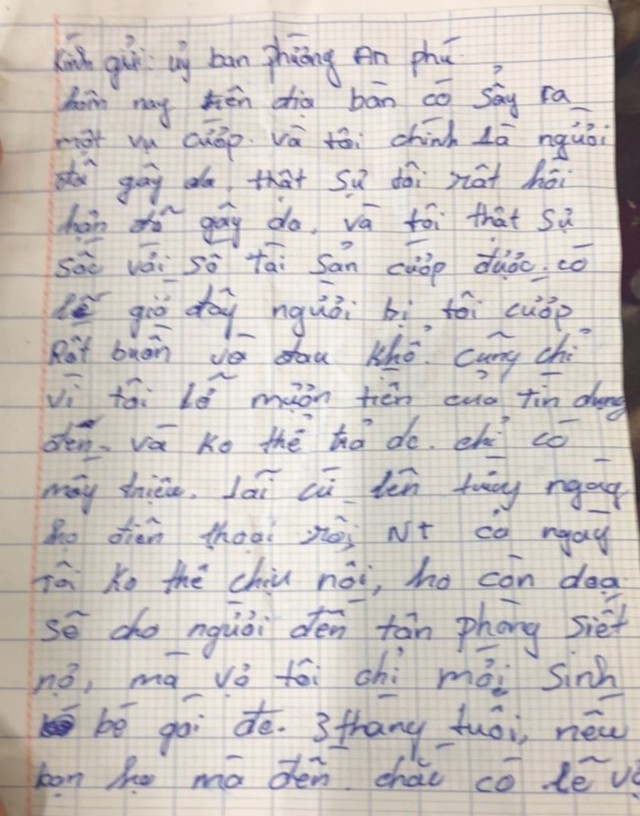 Kính gửi: ủy ban phường An phú
hôm nay trên địa bàn có sảy ra
một vụ cướp. và tôi chính là người
đã gây da. thật sự tôi rất hối
hận đã gây da, và tôi thật sự
sốc với số tài sản cướp được. có
lẽ giờ đây người bị tôi cướp
Rất buồn và đau khổ. cũng chỉ
vì tôi lỡ mượn tiền của tín dụng
đen. và ko thể trả dc. chỉ có
mấy triệu. lãi cứ lên từng ngày
họ điện thoại rồi NT cả ngày
tôi ko thể chịu nổi, họ còn dọa
sẽ cho người đến tận phòng siết
nợ, mà vợ tôi chỉ mới sinh
bé gái dc. 3 tháng tuổi, nếu
bọn họ mà đến chắc có lẽ vợ